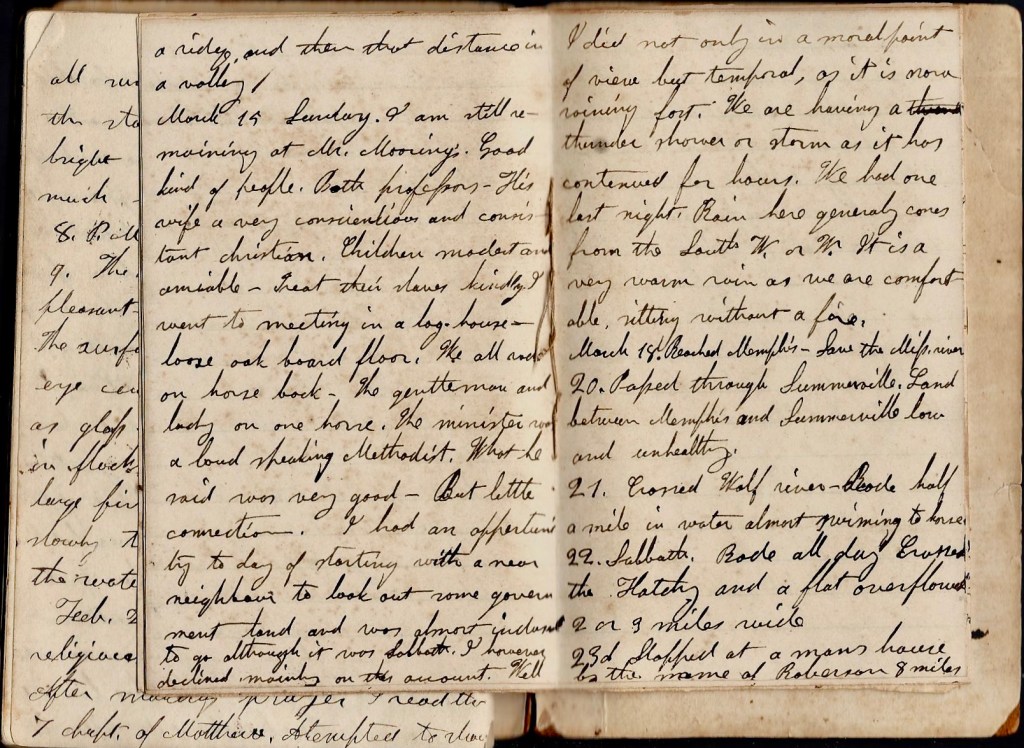 all
the
bright
much
8.
9. The
pleasant
The surfa
eye
as glass
in flock
large fir
slowly t
the wate
Feb. 2
religious
After making prayer I read the
7 chapt. of Matthew. Atempted to
a ridge, and then that distance in
a valley
March 15 Sunday. I am still re-
maining at Mr. Mooring's. Good
kind of people. Both professors - His
wife a very conscientious and consis
tant christian. Children modest and
amiable - Treat their slaves kindly. I
went to meeting in a log-house -
loose oak board floor. We all rode
on horse back - The gentleman and
lady on one horse. The minister was
a loud speaking Methodist. What he
said was very good - But little
connection. I had an opportuni
ty to day of starting with a near
neighbour to look out some govern
ment land and was almost induced
to go although it was Sabbath. I however
declined mainly on this account. Well
I did not only in a moral point
of view but temporal, as it is now
raining fast. We are having a
thunder shower or storm as it has
contenued for hours. We had one
last night. Rain here generaly comes
from the South W. or W. It is a
very warm rain as we are comfort
able, sitting without a fire.
March 18. Reached Memphis - Saw the Miss. river
20. Passed through Summerville. Land
between Memphis and Summerville low
and unhealthy.
21. Crossed Wolf river - Rode half
a mile in water almost swiming to horse
22. Sabbath. Rode all day Crossed
the Hatchy and a flat overflowed
2 or 3 miles wide
23d Stopped at a mans house
by the name of Roberson 8 miles